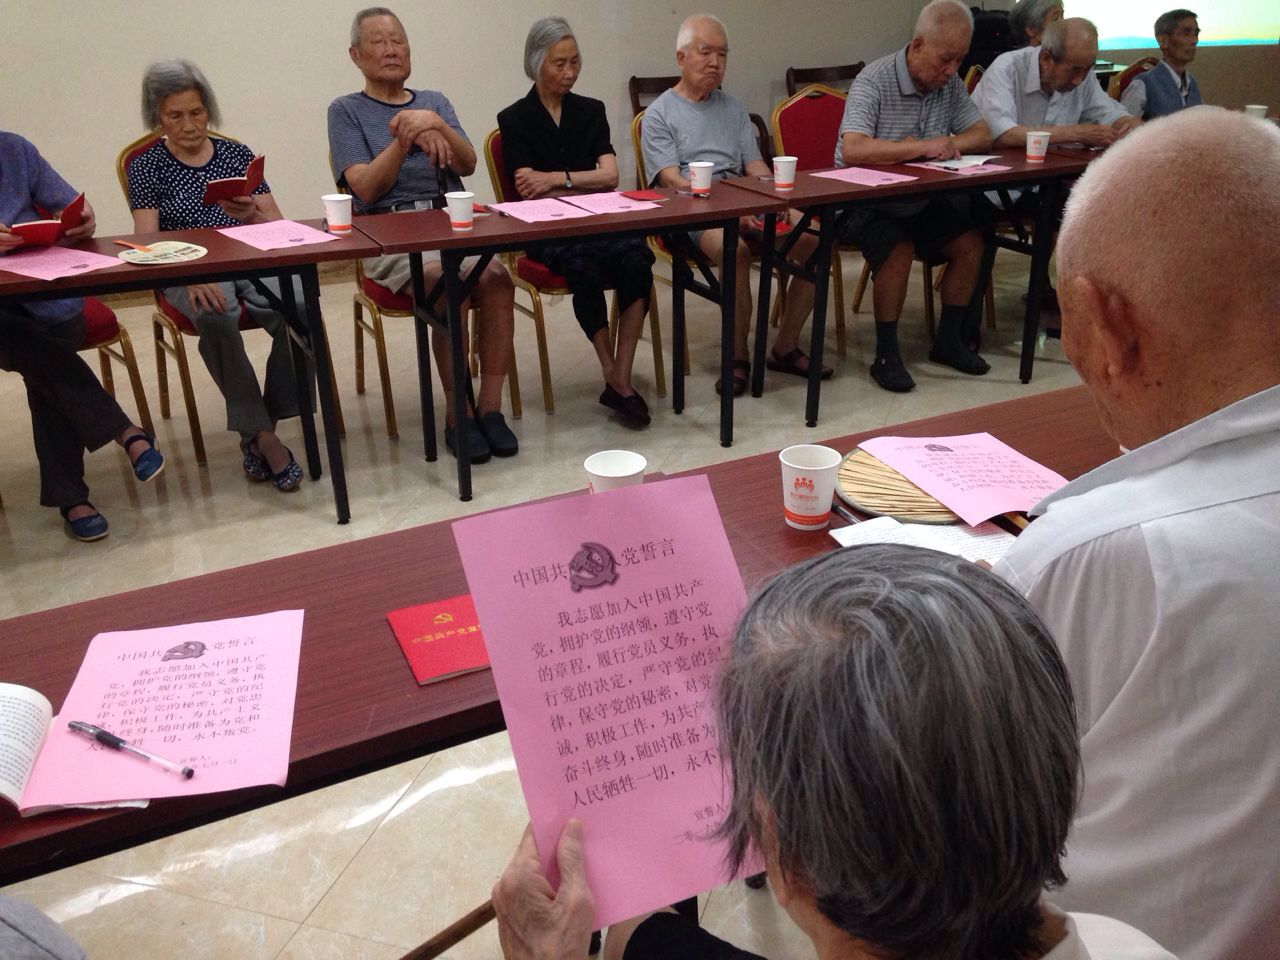 中国共 人党誓言
我志愿加入中国共产
党，拥护党的纲领，遵守党
的章程，履行党员义务，执
行党的决定，严守党的纪
律，保守党的秘密，对党
诚，积极工作，为共产
奋斗终身，随时准备为
人民牺牲一切，永不
宣誓人
二零一六
中国共 党誓言
我志愿加入中国共产
党，拥护党的纲领，遵守党
的章程，履行党员义务，执
行党的决定，严守党的纪
律，保守党的秘密，对党忠
诚，积极工作，为共产主义
终身，随时准备为党和
牺牲一切，永不叛党。
宣誓人：
年七月一日
中国共产党章